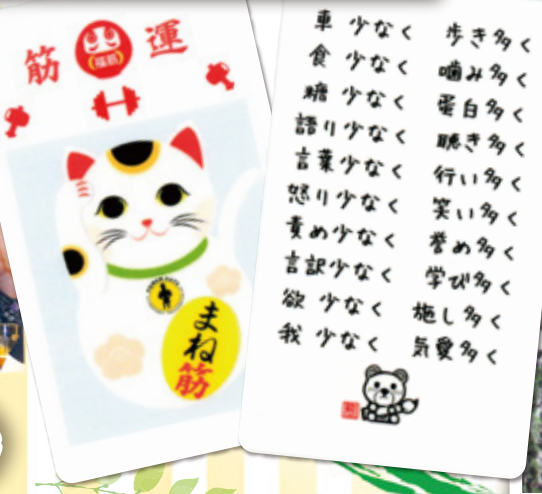 筋 運
福筋
まね
筋
車 少なく 歩き多く
食 少なく 噛み多く
糖 少なく 蛋白多く
語り少なく 聴き多く
言葉少なく 行い多く
怒り少なく 笑い多く
責め少なく 誉め多く
言訳少なく 学び多く
欲 少なく 施し多く
我 少なく 気愛多く